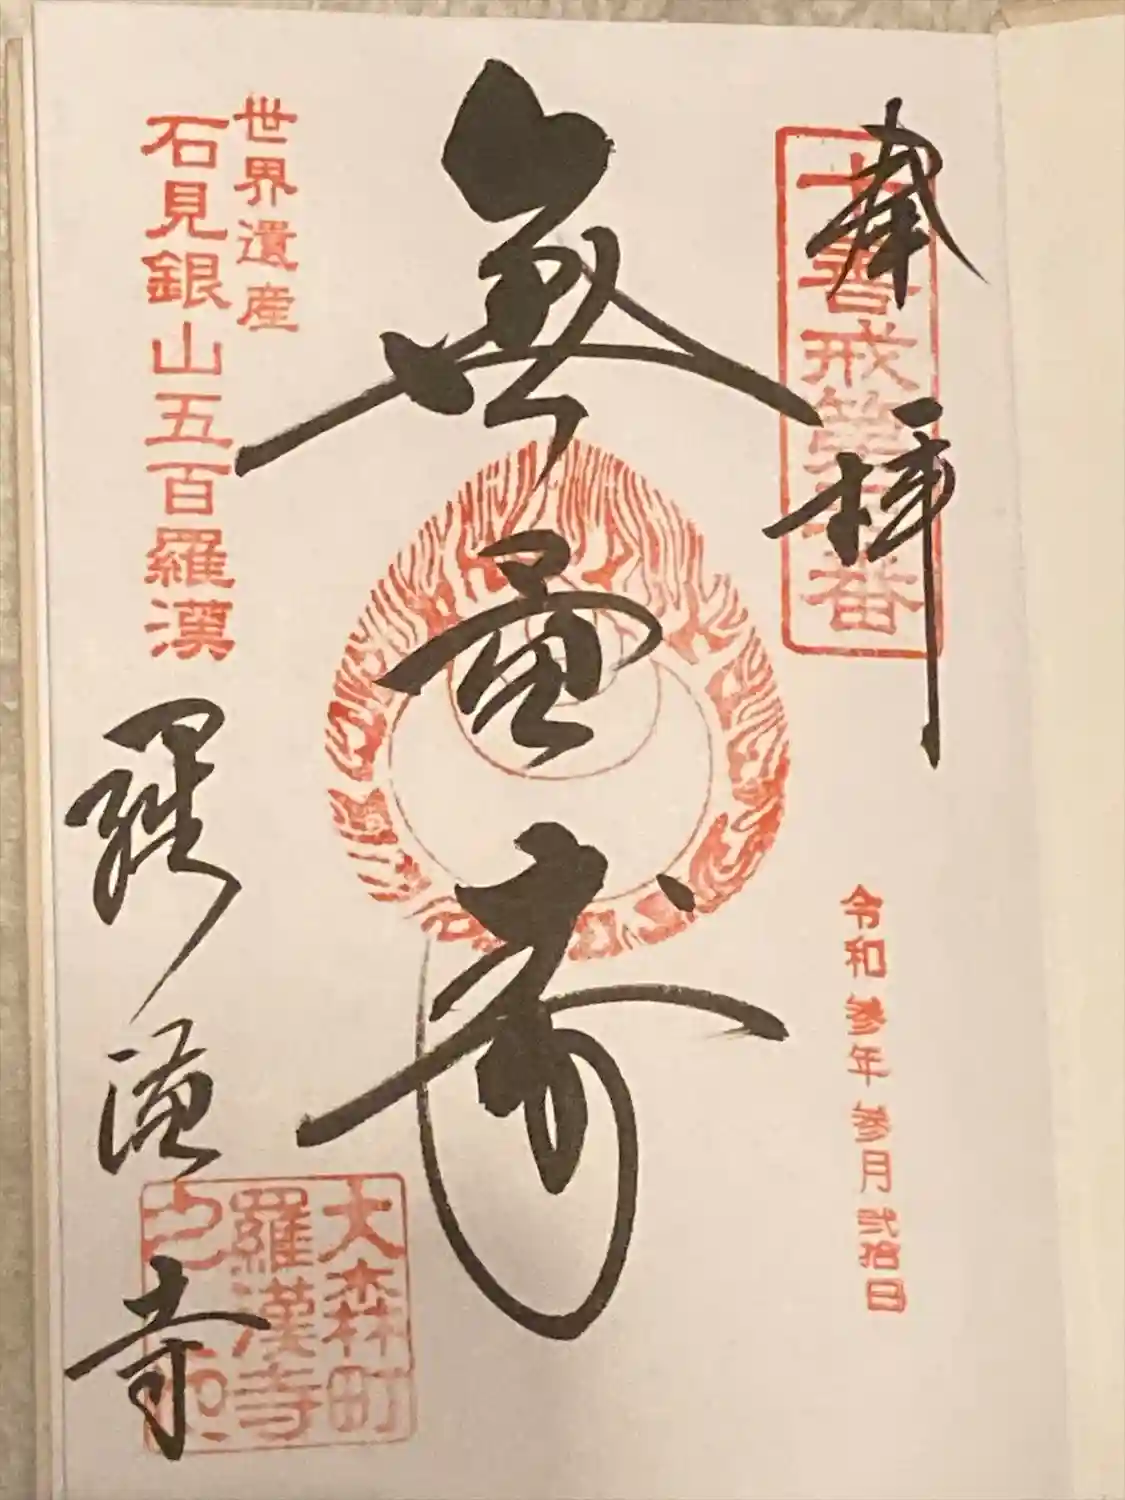 奉拝
十善戒第 番
令和参年参月弐拾日
無量寿
世界遺産
石見銀山五百羅漢
羅漢寺
大森町
羅漢寺
之印